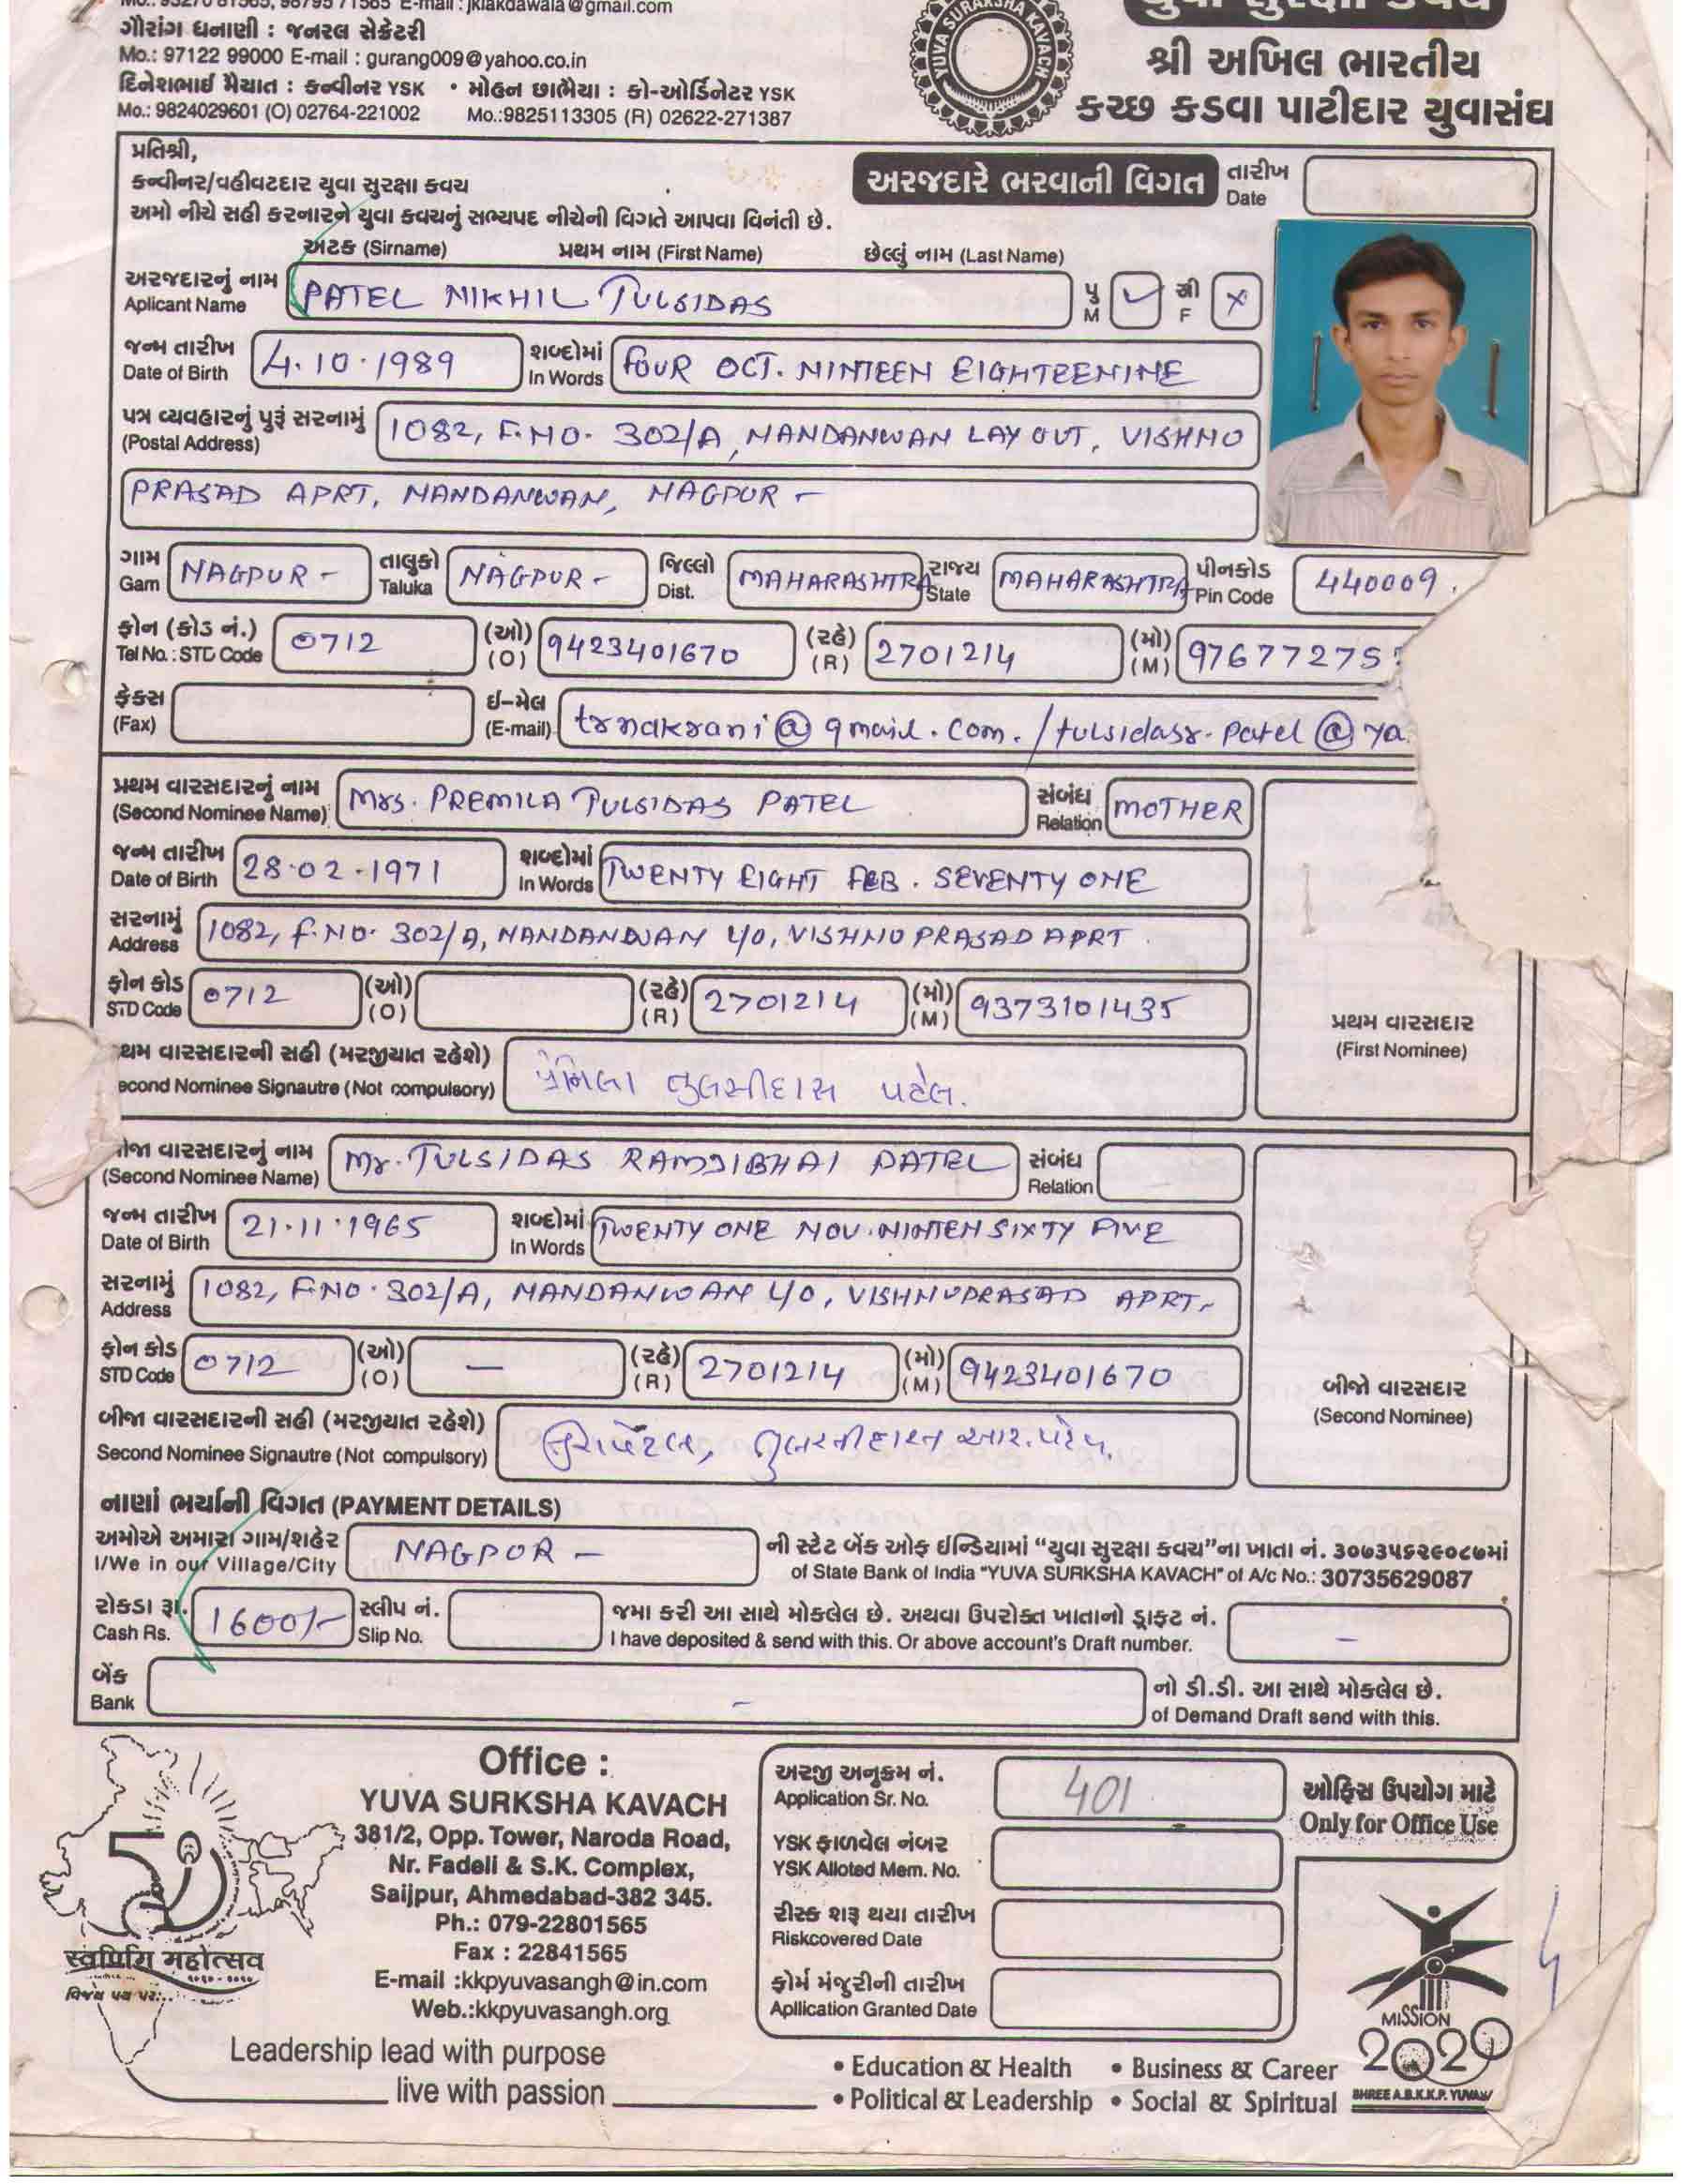 Mo.: 93270 81565, 98795 71565 E-mail : jklakdawala@gmail.com
ગૌરાંગ ધનાણી : જનરલ સેક્રેટરી
Mo.: 97122 99000 E-mail : gurang009@yahoo.co.in
દિનેશભાઈ મૈયાત : કન્વીનર YSK • મોહન છાભૈયા : કો-ઓર્ડિનેટર YSK
Mo.: 9824029601 (O) 02764-221002 Mo.:9825113305 (R) 02622-271387
YUVA SURAKSHA KAVACH
યુવા સુરક્ષા કવચ
શ્રી અખિલ ભારતીય
કચ્છ કડવા પાટીદાર યુવાસંઘ
પ્રતિશ્રી,
કન્વીનર/વહીવટદાર યુવા સુરક્ષા કવચ
અમો નીચે સહી કરનારને યુવા કવચનું સભ્યપદ નીચેની વિગતે આપવા વિનંતી છે.
અરજદારે ભરવાની વિગત
તારીખ
Date
અટક (Sirname) પ્રથમ નામ (First Name) છેલ્લું નામ (Last Name)
અરજદારનું નામ
Aplicant Name
PATEL NIKHIL TULSIDAS
પુ
M
સ્રી
F
જન્મ તારીખ
Date of Birth
4.10.1989
શબ્દોમાં
In Words
FOUR OCT. NINTEEN EIGHTEENINE
પત્ર વ્યવહારનું પુરૂં સરનામું
(Postal Address)
1082, F.NO. 302/A, NANDANWAN LAYOUT, VISHNU
PRASAD APRT, NANDANWAN, NAGPUR -
ગામ
Gam
NAGPUR -
તાલુકો
Taluka
NAGPUR -
જિલ્લો
Dist.
MAHARASHTRA
રાજ્ય
State
MAHARASHTRA
પીનકોડ
Pin Code
440009.
ફોન (કોડ નં.)
Tel No. : STD Code
0712
(ઓ)
(O)
9423401670
(રહે)
(R)
2701214
(મો)
(M)
976777275
ફેક્સ
(Fax)
ઈ-મેલ
(E-mail)
trnakrani@gmail.com. / tulsidasr.patel@ya
પ્રથમ વારસદારનું નામ
(Second Nominee Name)
Mrs. PREMILA TULSIDAS PATEL
સંબંધ
Relation
MOTHER
જન્મ તારીખ
Date of Birth
28.02.1971
શબ્દોમાં
In Words
TWENTY EIGHT FEB. SEVENTY ONE
સરનામું
Address
1082, F.NO. 302/A, NANDANWAN L/O, VISHNUPRASAD APRT.
ફોન કોડ
STD Code
0712
(ઓ)
(O)
(રહે)
(R)
2701214
(મો)
(M)
9373101435
થમ વારસદારની સહી (મરજીયાત રહેશે)
econd Nominee Signautre (Not compulsory)
પ્રેમિલા તુલસીદાસ પટેલ.
પ્રથમ વારસદાર
(First Nominee)
ીજા વારસદારનું નામ
(Second Nominee Name)
Mr. TULSIDAS RAMJIBHAI PATEL
સંબંધ
Relation
જન્મ તારીખ
Date of Birth
21.11.1965
શબ્દોમાં
In Words
TWENTY ONE NOV. NINTEN SIXTY FIVE
સરનામું
Address
1082, F.NO. 302/A, NANDANWAN L/O, VISHNUPRASAD APRT.
ફોન કોડ
STD Code
0712
(ઓ)
(O)
—
(રહે)
(R)
2701214
(મો)
(M)
9423401670
બીજા વારસદારની સહી (મરજીયાત રહેશે)
Second Nominee Signautre (Not compulsory)
તુલસીદાસ આર. પટેલ.
બીજો વારસદાર
(Second Nominee)
નાણાં ભર્યાની વિગત (PAYMENT DETAILS)
અમોએ અમારા ગામ/શહેર
I/We in our Village/City
NAGPUR -
ની સ્ટેટ બેંક ઓફ ઈન્ડિયામાં “યુવા સુરક્ષા કવચ”ના ખાતા નં. ૩૦૭૩૫૬૨૯૦૮૭માં
of State Bank of India "YUVA SURKSHA KAVACH" of A/c No.: 30735629087
રોકડા રૂા.
Cash Rs.
1600/-
સ્લીપ નં.
Slip No.
જમા કરી આ સાથે મોકલેલ છે. અથવા ઉપરોક્ત ખાતાનો ડ્રાફ્ટ નં.
I have deposited & send with this. Or above account's Draft number.
-
બેંક
Bank
-
નો ડી.ડી. આ સાથે મોકલેલ છે.
of Demand Draft send with this.
Office :
YUVA SURKSHA KAVACH
381/2, Opp. Tower, Naroda Road,
Nr. Fadeli & S.K. Complex,
Saijpur, Ahmedabad-382 345.
Ph.: 079-22801565
Fax : 22841565
E-mail :kkpyuvasangh@in.com
Web.:kkpyuvasangh.org
અરજી અનુક્રમ નં.
Application Sr. No.
401
ઓફિસ ઉપયોગ માટે
Only for Office Use
YSK ફાળવેલ નંબર
YSK Alloted Mem. No.
રીસ્ક શરૂ થયા તારીખ
Riskcovered Date
ફોર્મ મંજુરીની તારીખ
Apllication Granted Date
50
स्वर्णिम महोत्सव
Leadership lead with purpose
live with passion
• Education & Health • Business & Career
• Political & Leadership • Social & Spiritual
MISSION
2020
SHREE A.B.K.K.P. YUVA